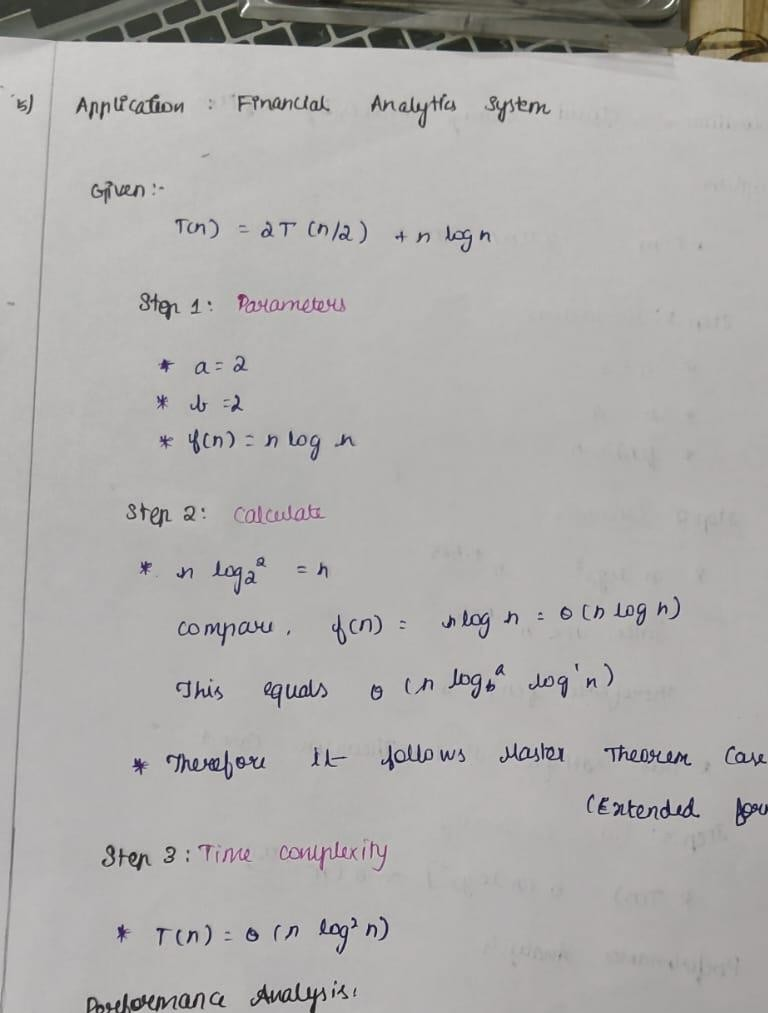 5) Application : Financial Analytics System
Given :-
T(n) = 2T (n/2) + n log n
Step 1: Parameters
* a = 2
* b = 2
* f(n) = n log n
Step 2: Calculate
* n log₂² = n
compare, f(n) = n log n = θ (n log n)
This equals θ (n log_b^a log¹ n)
* Therefore it follows Master Theorem Case
(Extended for
Step 3 : Time complexity
* T(n) = θ (n log² n)
Performance Analysis: